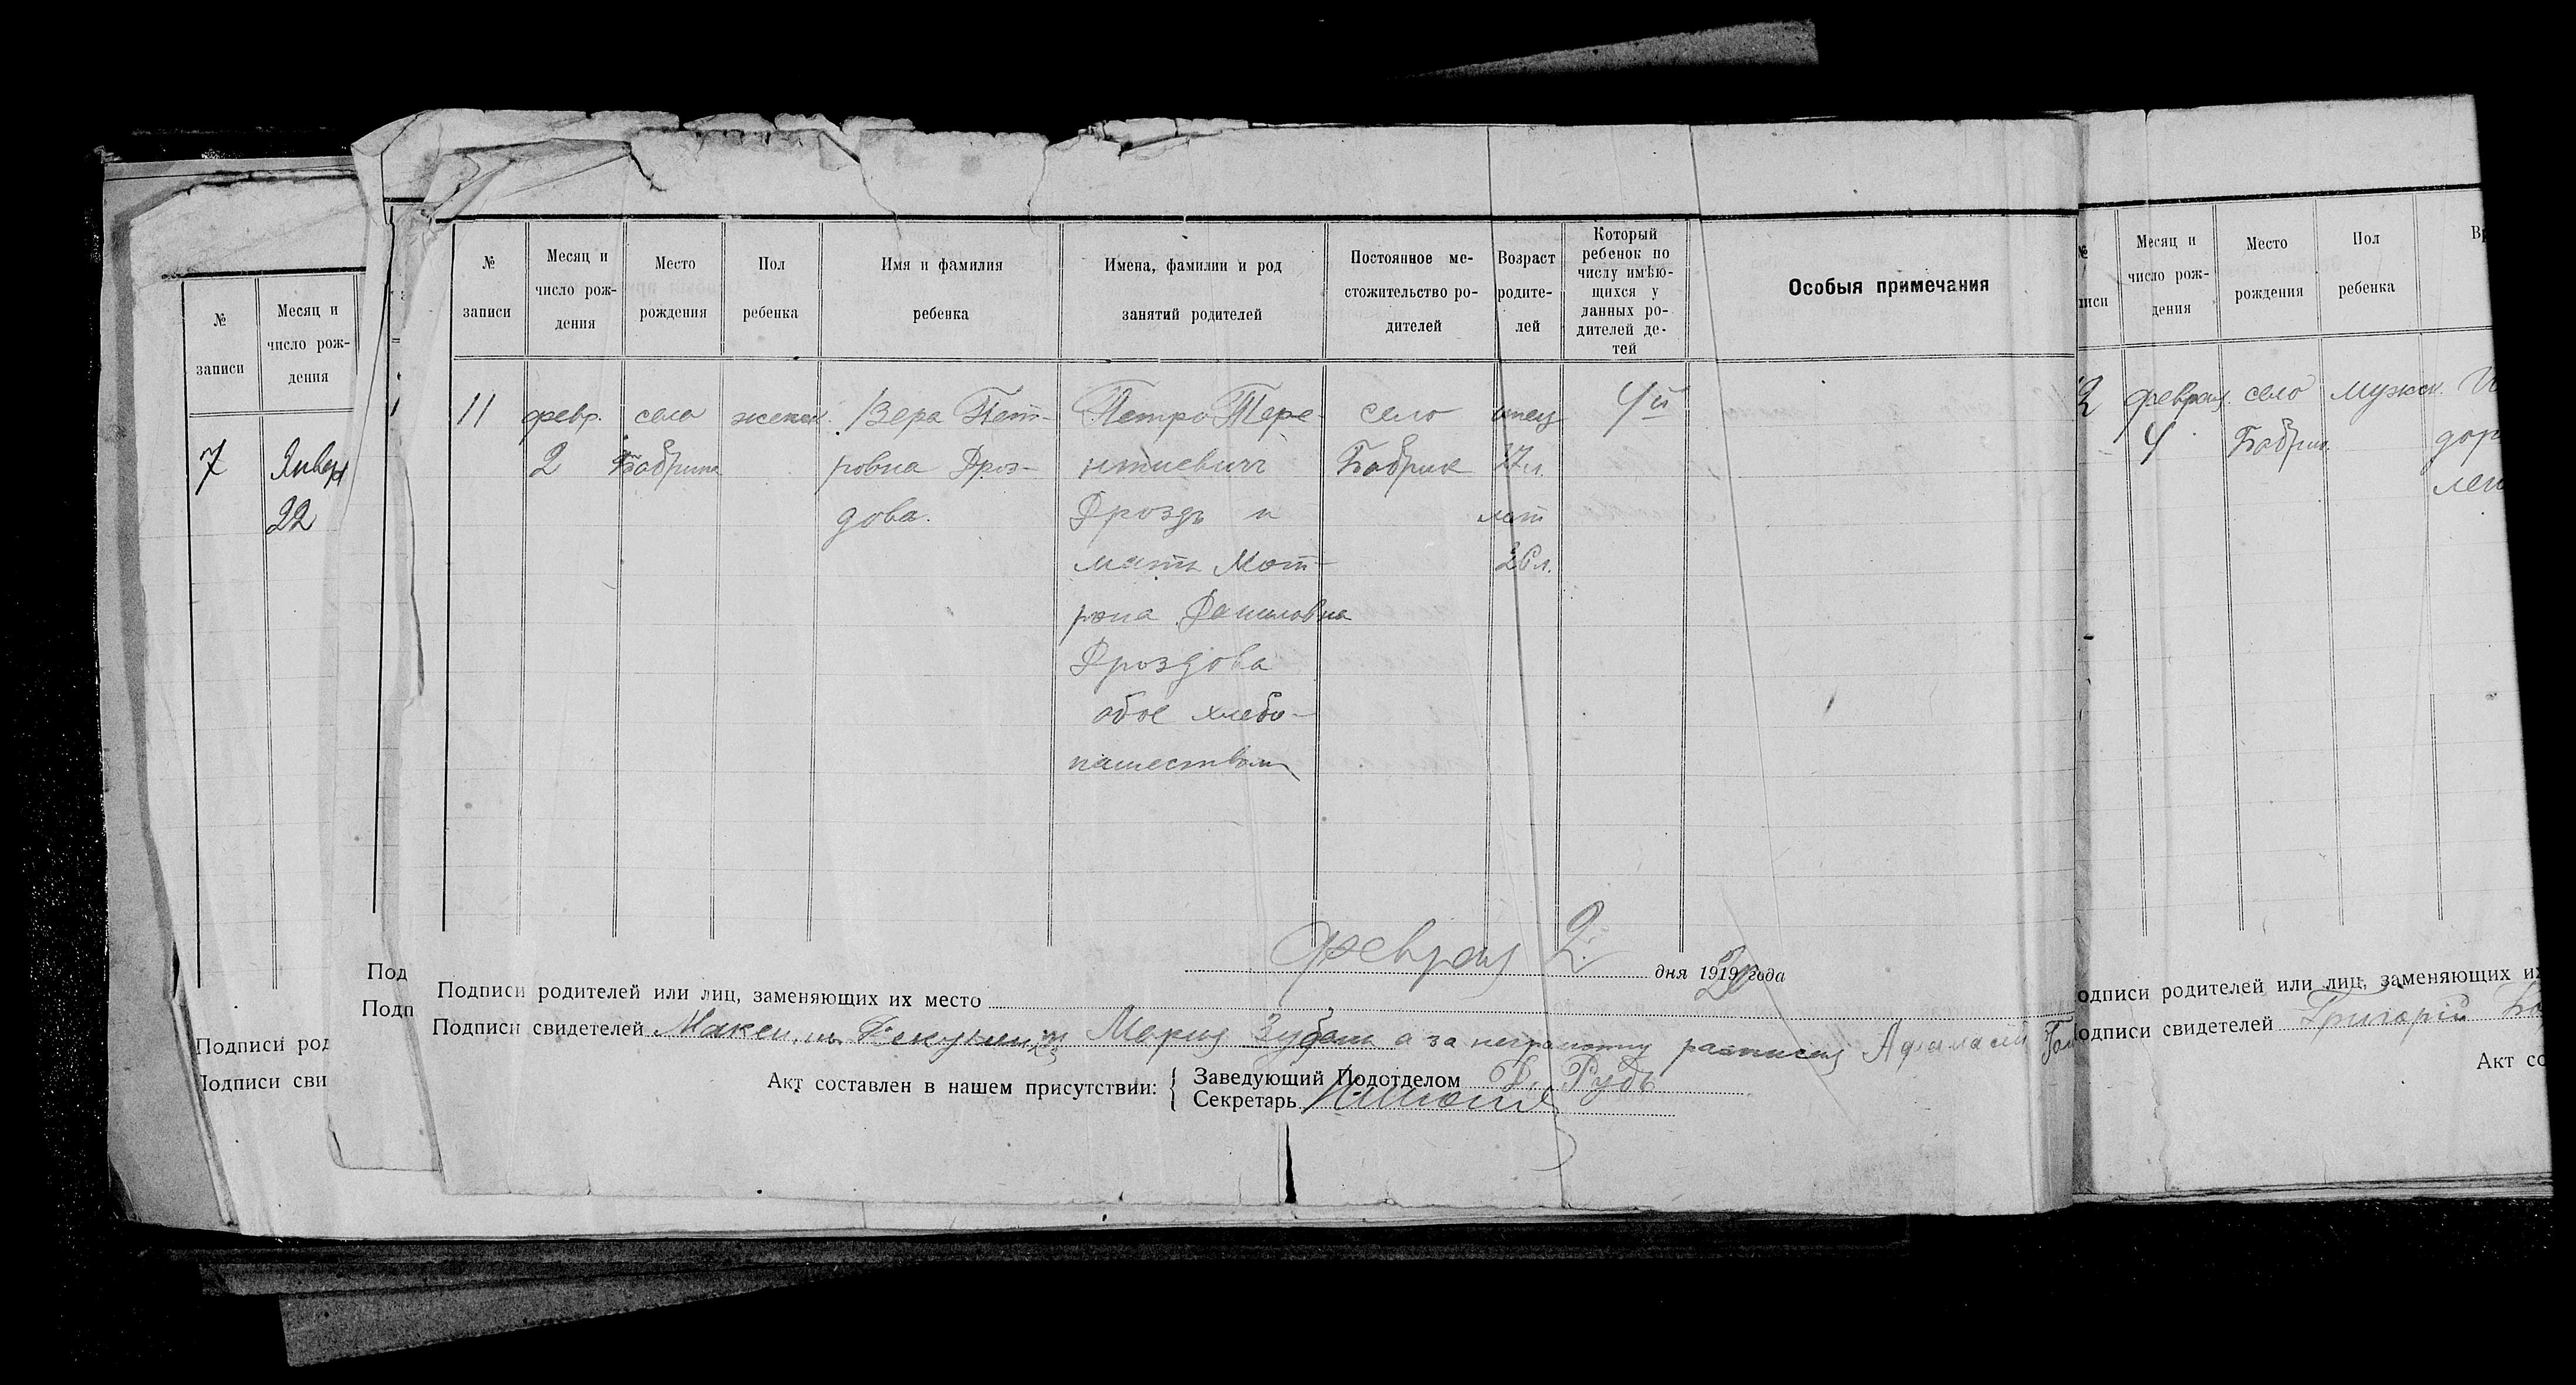 № записи
Месяц и число рождения
7 Январ
22
Подписи род
Подписи сви
Под
Подп
№ записи
Месяц и число рож-дения
Место рождения
Пол ребенка
Имя и фамилия ребенка
Имена, фамилии и род занятий родителей
Постоянное ме-стожительство ро-дителей
Возраст родите-лей
Который ребенок по числу имѣю-щихся у данных ро-дителей де-тей
Особыя примечания
11 февр. село женск. Вера Пет- Петро Тере- село отец 4й
2 Бобрика ровна Дроз- нтиевич Бобрик 27 л.
дова. Дроздъ и мат
мать Мот- 26 л.
рона Даниловна
Дроздова
обое хлебо-
пашеством
Февраля 2 дня 1919 20 года
Подписи родителей или лиц, заменяющих их место
Подписи свидетелей Мария Зубан а за неграмотну расписался Афанасий
Акт составлен в нашем присутствии: { Заведующий Подотделом Рудь
Секретарь
№ писи
Месяц и число рож-дения
Место рождения
Пол ребенка
Вр
2 февраля село мужск.
4 Бобрик. дор
лен
одписи родителей или лиц, заменяющих их
одписи свидетелей Григорій
Акт со